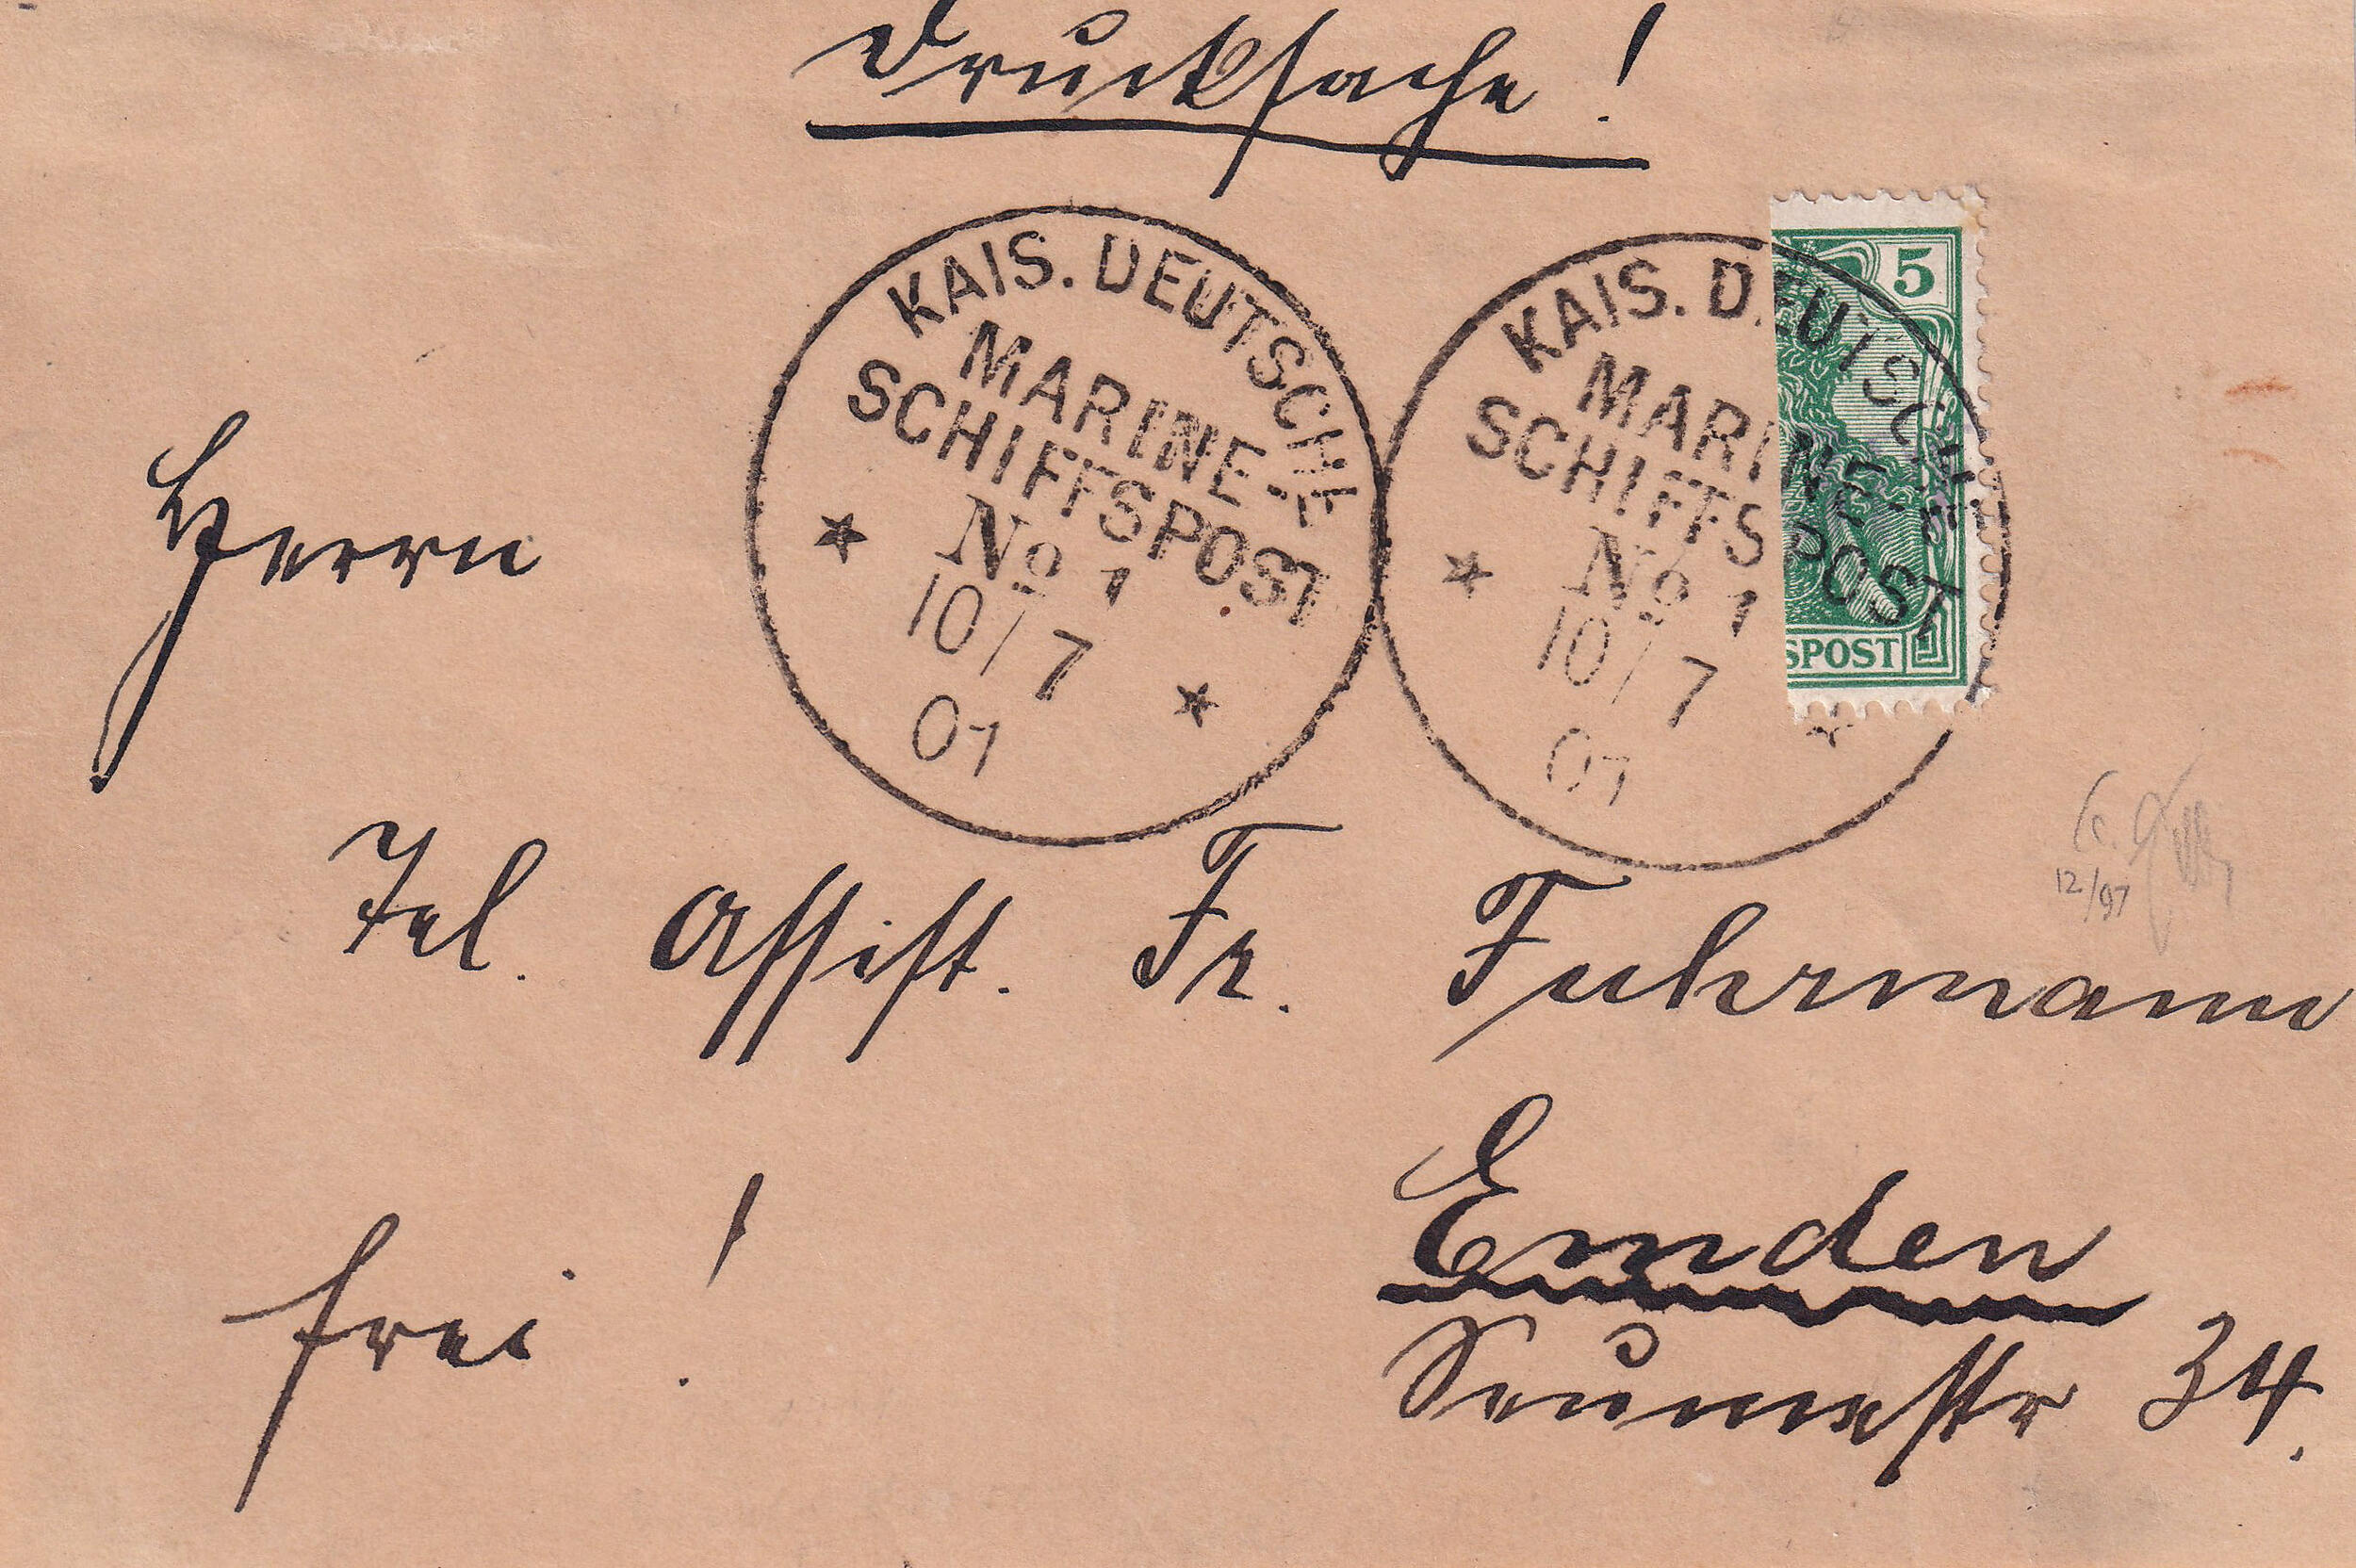 Drucksache!
KAIS. DEUTSCHE
MARINE-
SCHIFFSPOST
No 1
10/7
01
KAIS. DEUTSCHE
MARINE-
SCHIFFSPOST
No 1
10/7
01
5
SPOST
Herrn
Tel. Assist. Fr. Fuhrmann
12/97
Emden
frei!
34.